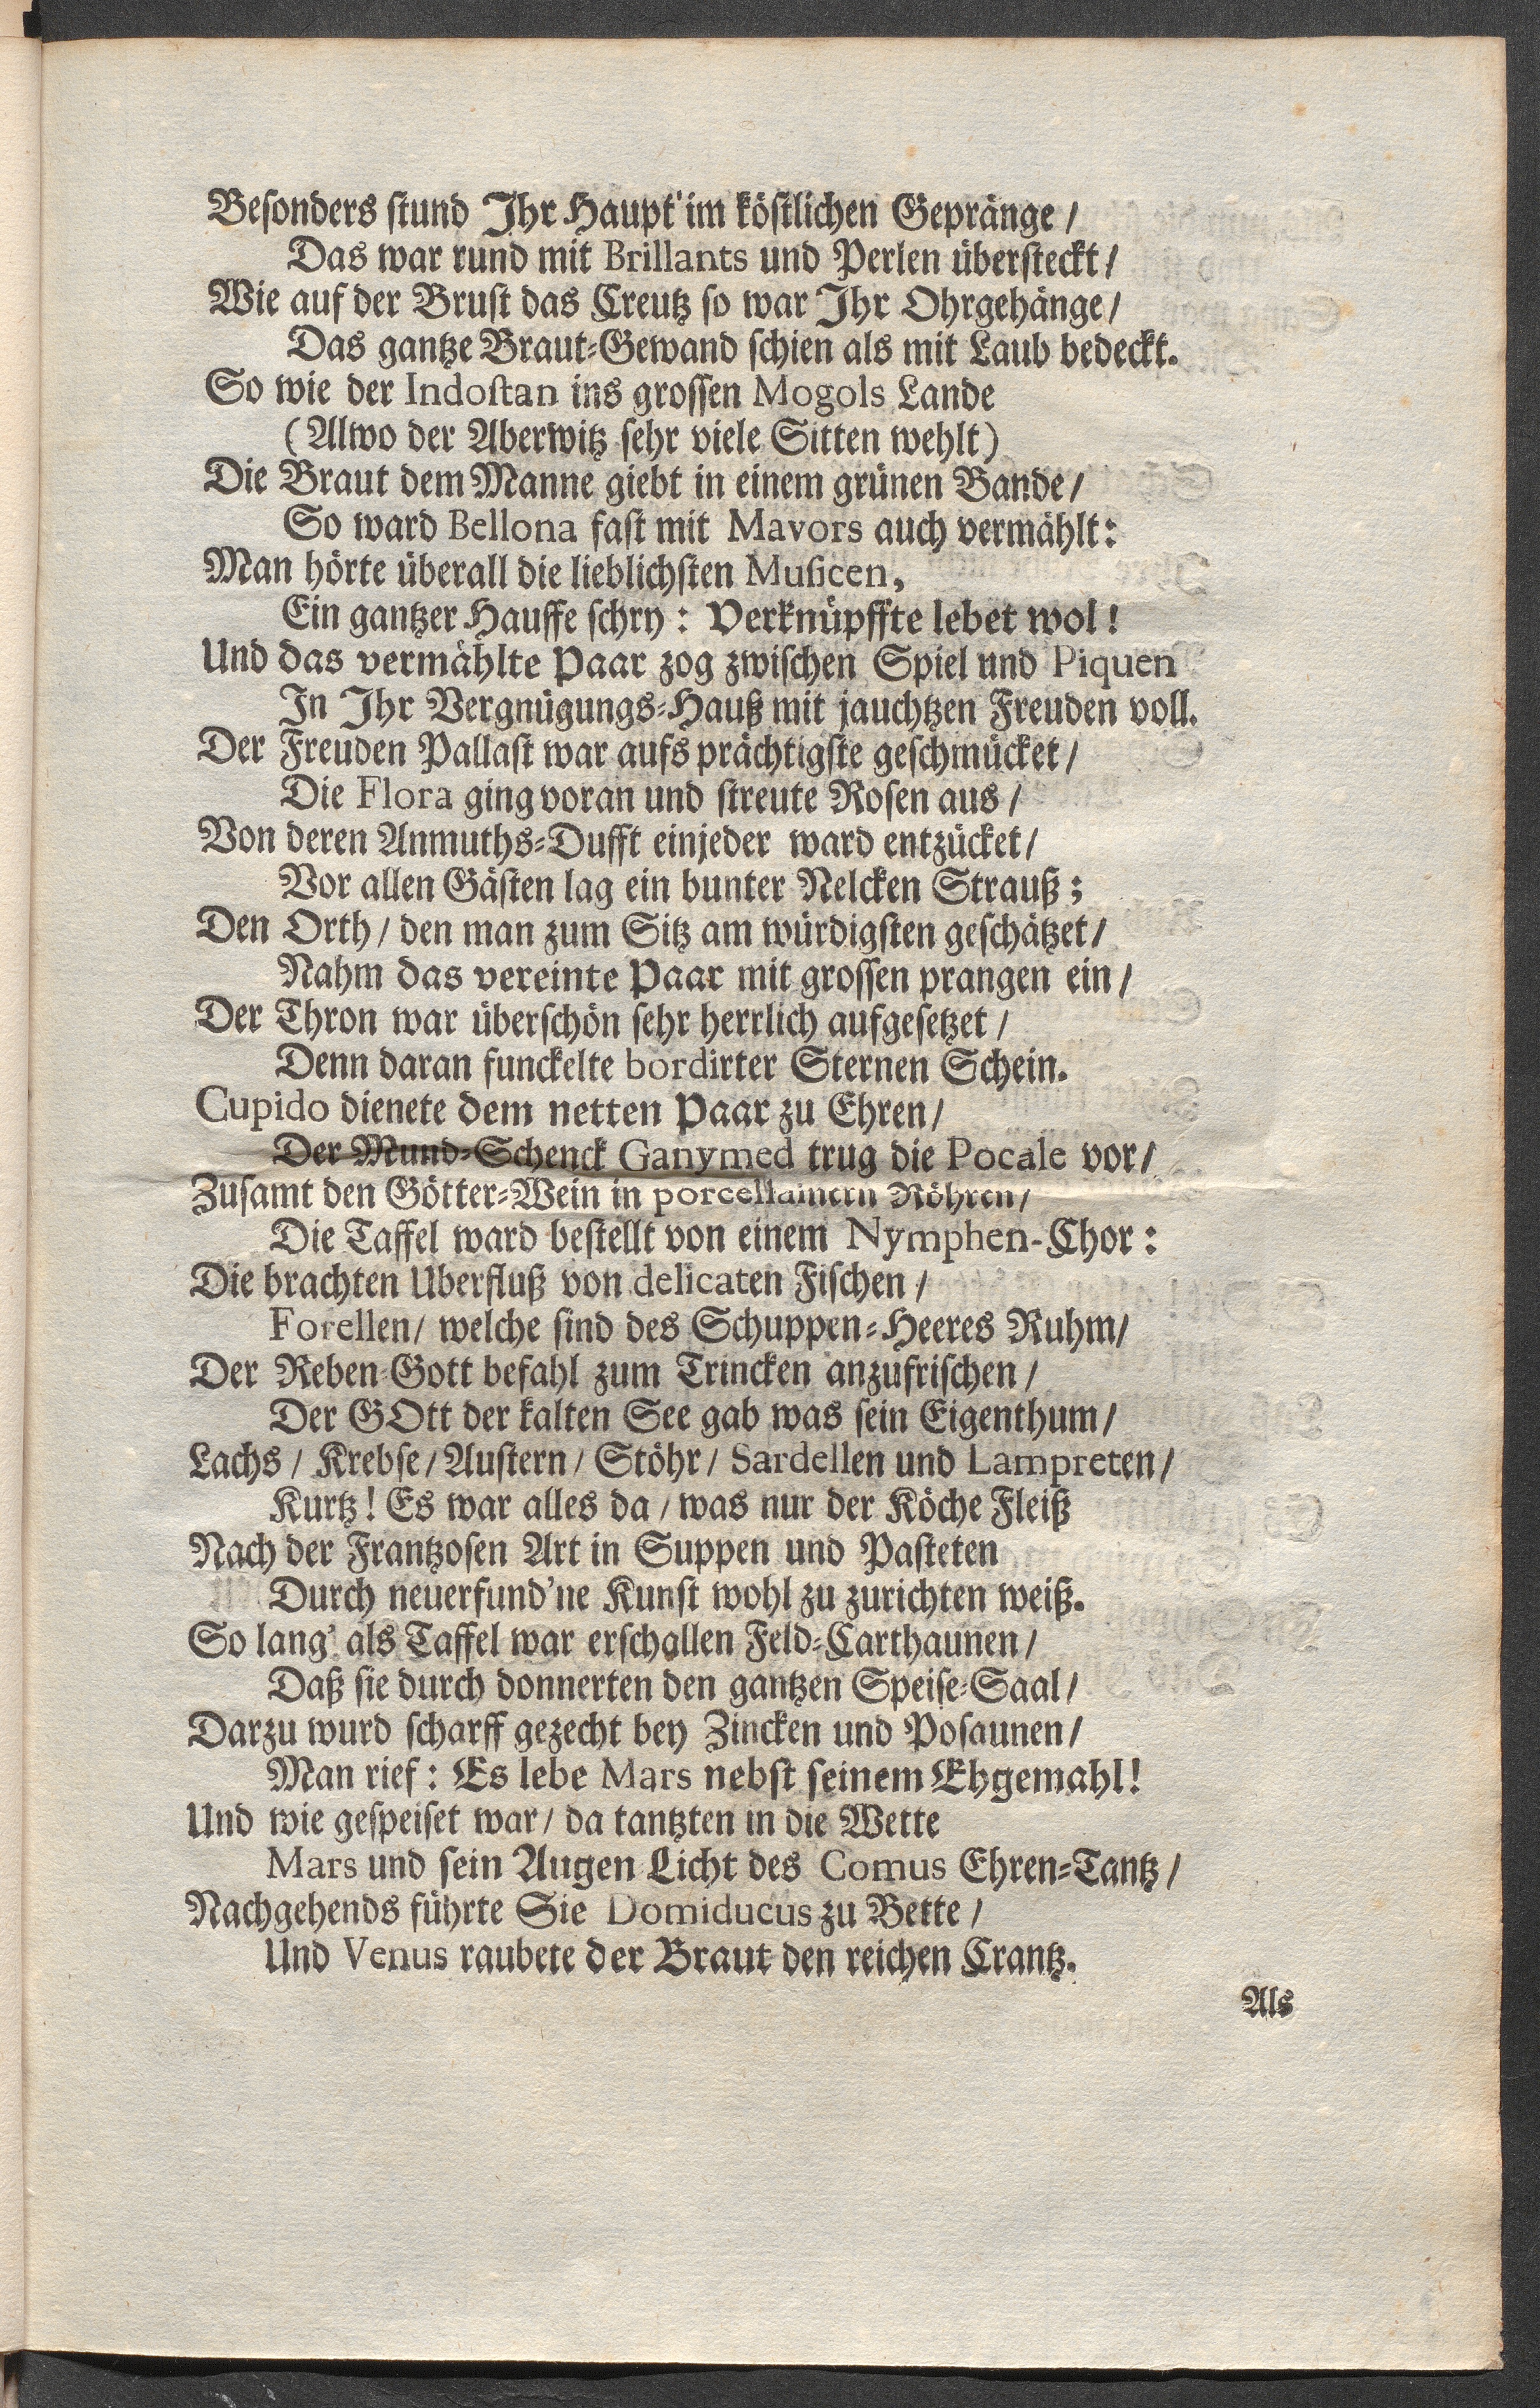 Besonders stund Ihr Haupt' im köstlichen Gepränge /
Das war rund mit Brillants und Perlen übersteckt /
Wie auf der Brust das Creutz so war Ihr Ohrgehänge /
Das gantze Braut-Gewand schien als mit Laub bedeckt.
So wie der Indostan ins grossen Mogols Lande
(Alwo der Aberwitz sehr viele Sitten wehlt)
Die Braut dem Manne giebt in einem grünen Bande /
So ward Bellona fast mit Mavors auch vermählt:
Man hörte überall die lieblichsten Musicen,
Ein gantzer Hauffe schry: Verknüpffte lebet wol!
Und das vermählte Paar zog zwischen Spiel und Piquen
In Ihr Vergnügungs-Hauß mit jauchtzen Freuden voll.
Der Freuden Pallast war aufs prächtigste geschmücket /
Die Flora ging voran und streute Rosen aus /
Von deren Anmuths-Dufft einjeder ward entzücket /
Vor allen Gästen lag ein bunter Nelcken Strauß;
Den Orth / den man zum Sitz am würdigsten geschätzet /
Nahm das vereinte Paar mit grossen prangen ein /
Der Thron war überschön sehr herrlich aufgesetzet /
Denn daran funckelte bordirter Sternen Schein.
Cupido dienete dem netten Paar zu Ehren /
Der Mund-Schenck Ganymed trug die Pocale vor /
Zusamt den Götter-Wein in porcellainern Röhren /
Die Taffel ward bestellt von einem Nymphen-Chor:
Die brachten Uberfluß von delicaten Fischen /
Forellen / welche sind des Schuppen-Heeres Ruhm /
Der Reben-Gott befahl zum Trincken anzufrischen /
Der GOtt der kalten See gab was sein Eigenthum /
Lachs / Krebse / Austern / Stöhr / Sardellen und Lampreten /
Kurtz! Es war alles da / was nur der Köche Fleiß
Nach der Frantzosen Art in Suppen und Pasteten
Durch neuerfund'ne Kunst wohl zu zurichten weiß.
So lang' als Taffel war erschallen Feld-Carthaunen /
Daß sie durch donnerten den gantzen Speise-Saal /
Darzu wurd scharff gezecht bey Zincken und Posaunen /
Man rief: Es lebe Mars nebst seinem Ehgemahl!
Und wie gespeiset war / da tantzten in die Wette
Mars und sein Augen-Licht des Comus Ehren-Tantz /
Nachgehends führte Sie Domiducus zu Bette /
Und Venus raubete der Braut den reichen Crantz.
Als